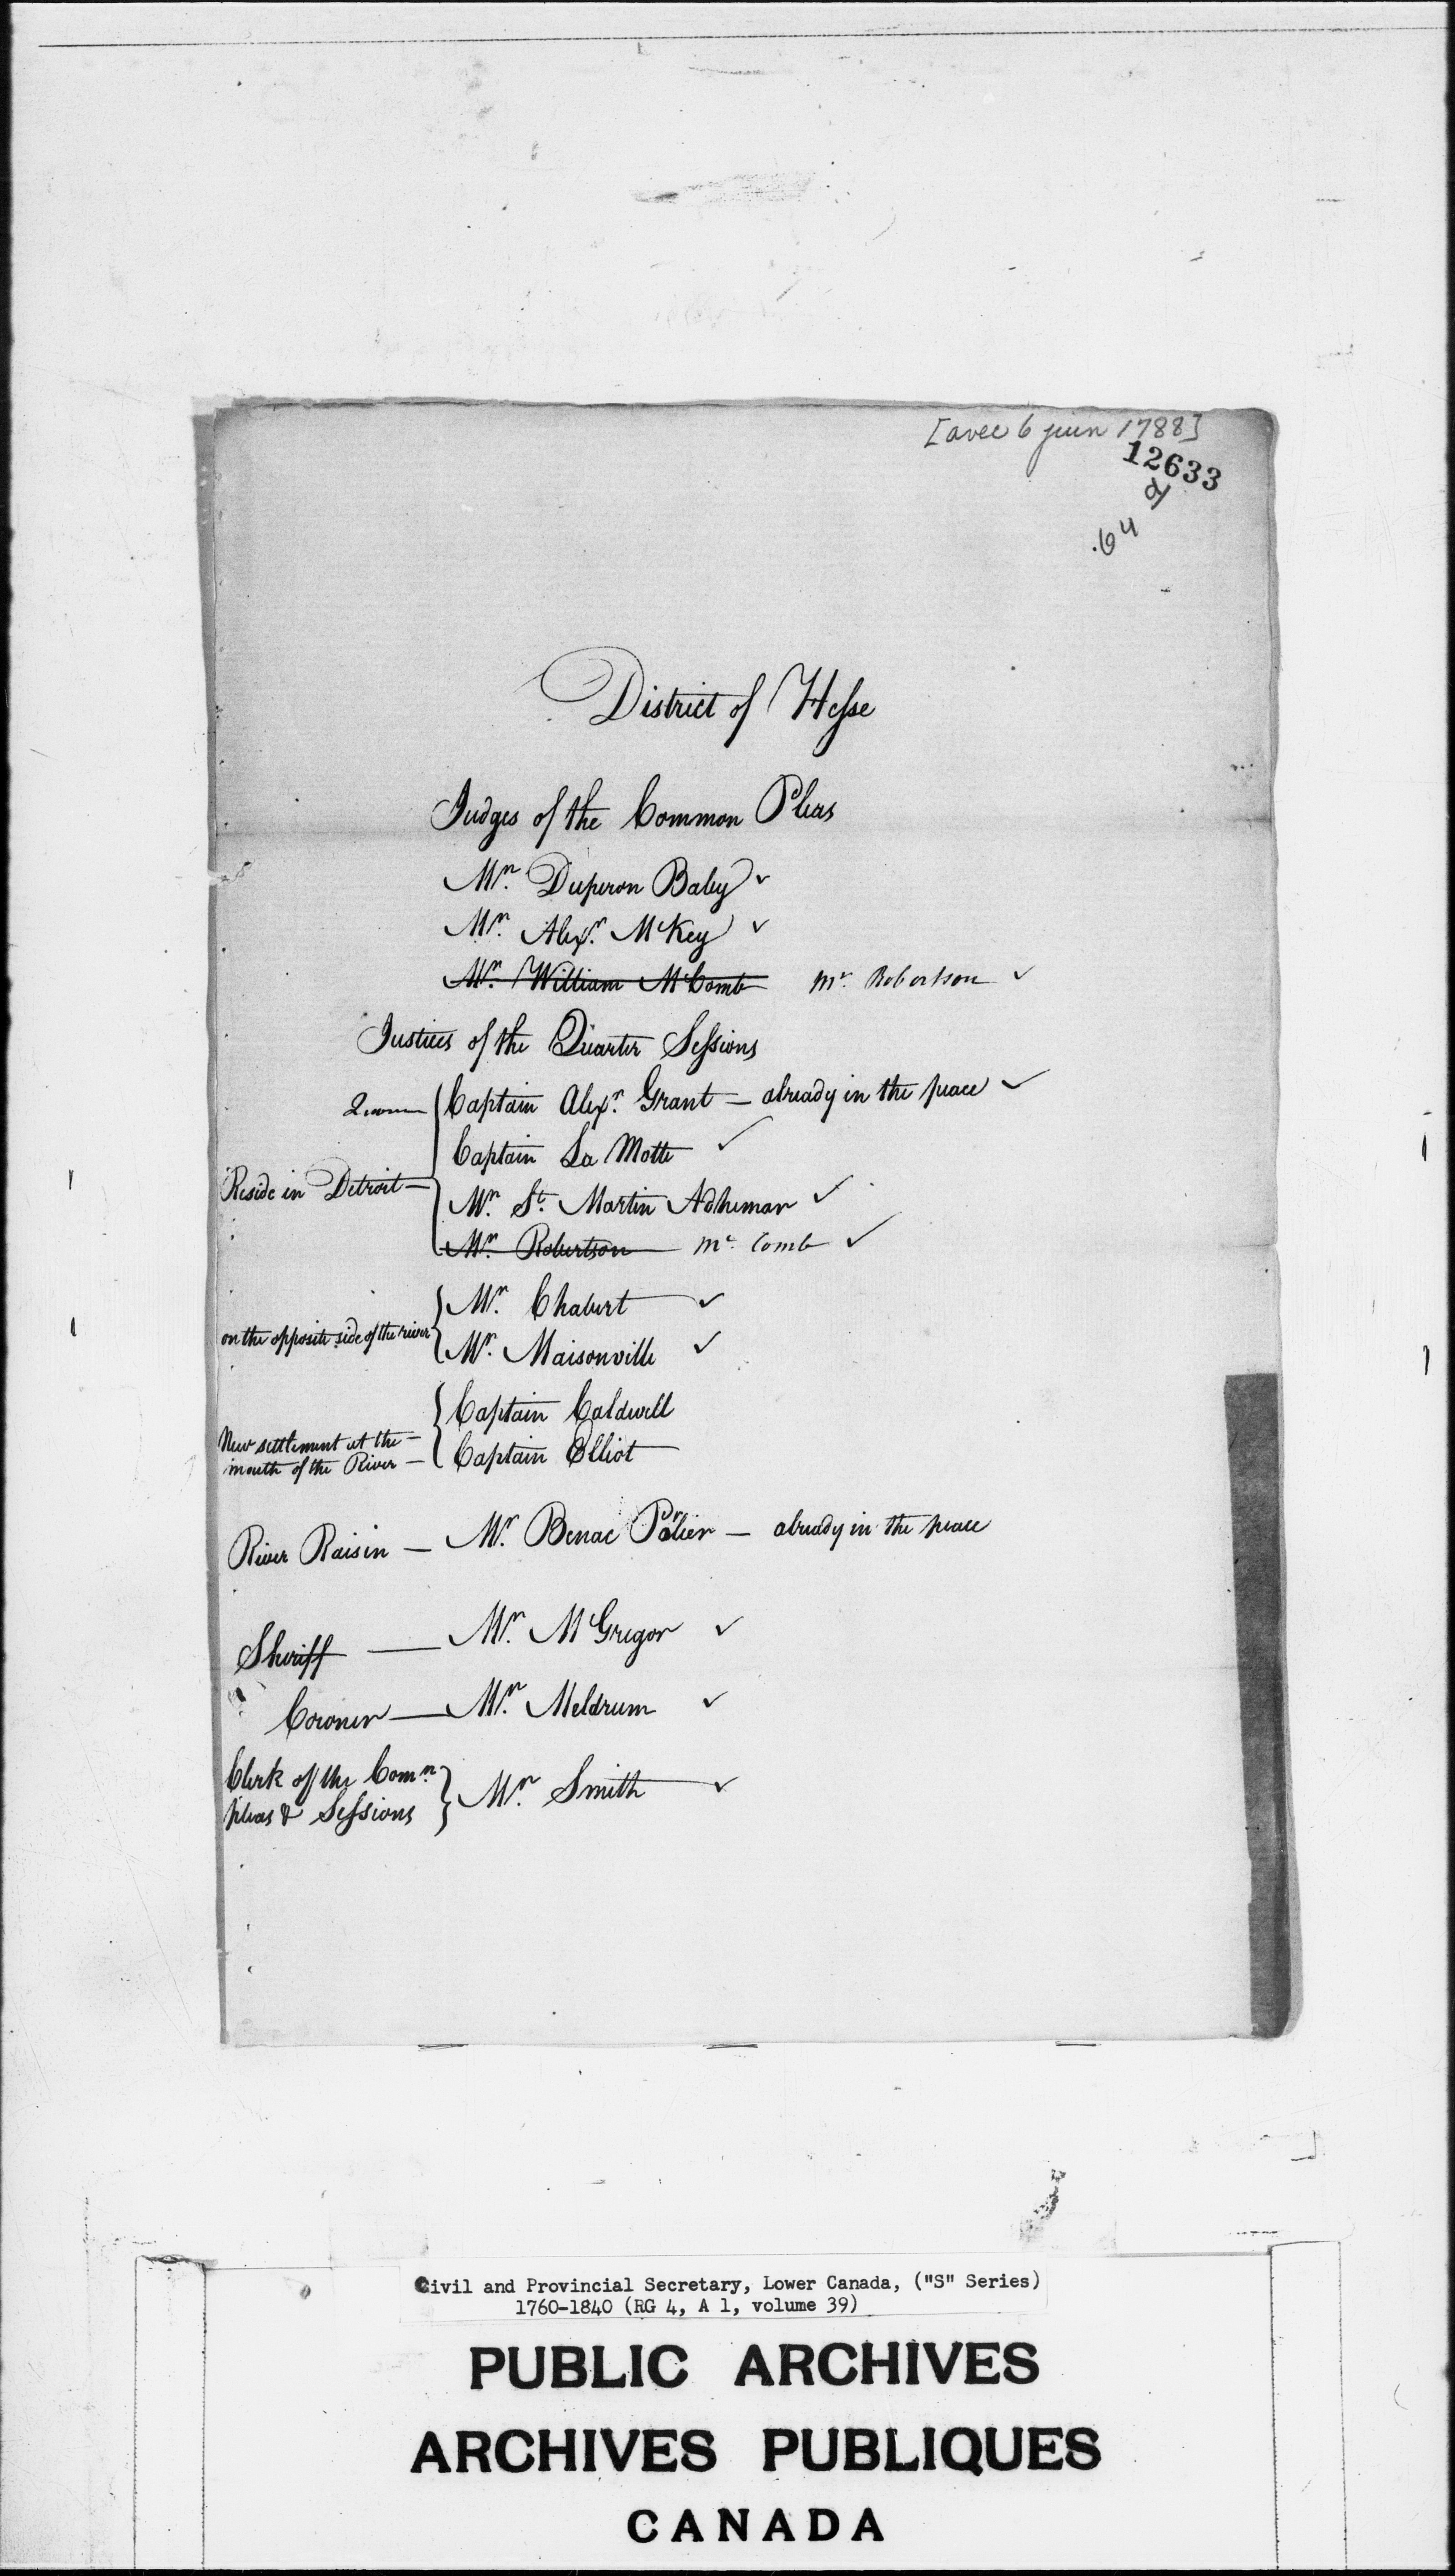 [avec 6 juin 1788]
12633
64
District of Hesse
Judges of the Common Pleas
Mr. Duperon Baby ✓
Mr. Alexr. McKey ✓
Mr. William McComb Mr. Robertson ✓
Justices of the Quarter Sessions
Captain Alexr. Grant — already in the peace ✓
Captain La Motte ✓
Reside in Detroit —
Mr. St. Martin Adhemar ✓
Mr. Robertson Mc. Comb ✓
Mr. Chabert ✓
on the opposite side of the river
Mr. Maisonville ✓
Captain Caldwell
New settlement at the —
mouth of the River —
Captain Elliot
River Raisin — Mr. Benac Porlier — already in the peace
Sheriff — Mr. McGregor ✓
Coroner — Mr. Meldrum ✓
Clerk of the Comn.
pleas & Sessions } Mr. Smith ✓
Civil and Provincial Secretary, Lower Canada, ("S" Series)
1760-1840 (RG 4, A 1, volume 39)
PUBLIC ARCHIVES
ARCHIVES PUBLIQUES
CANADA